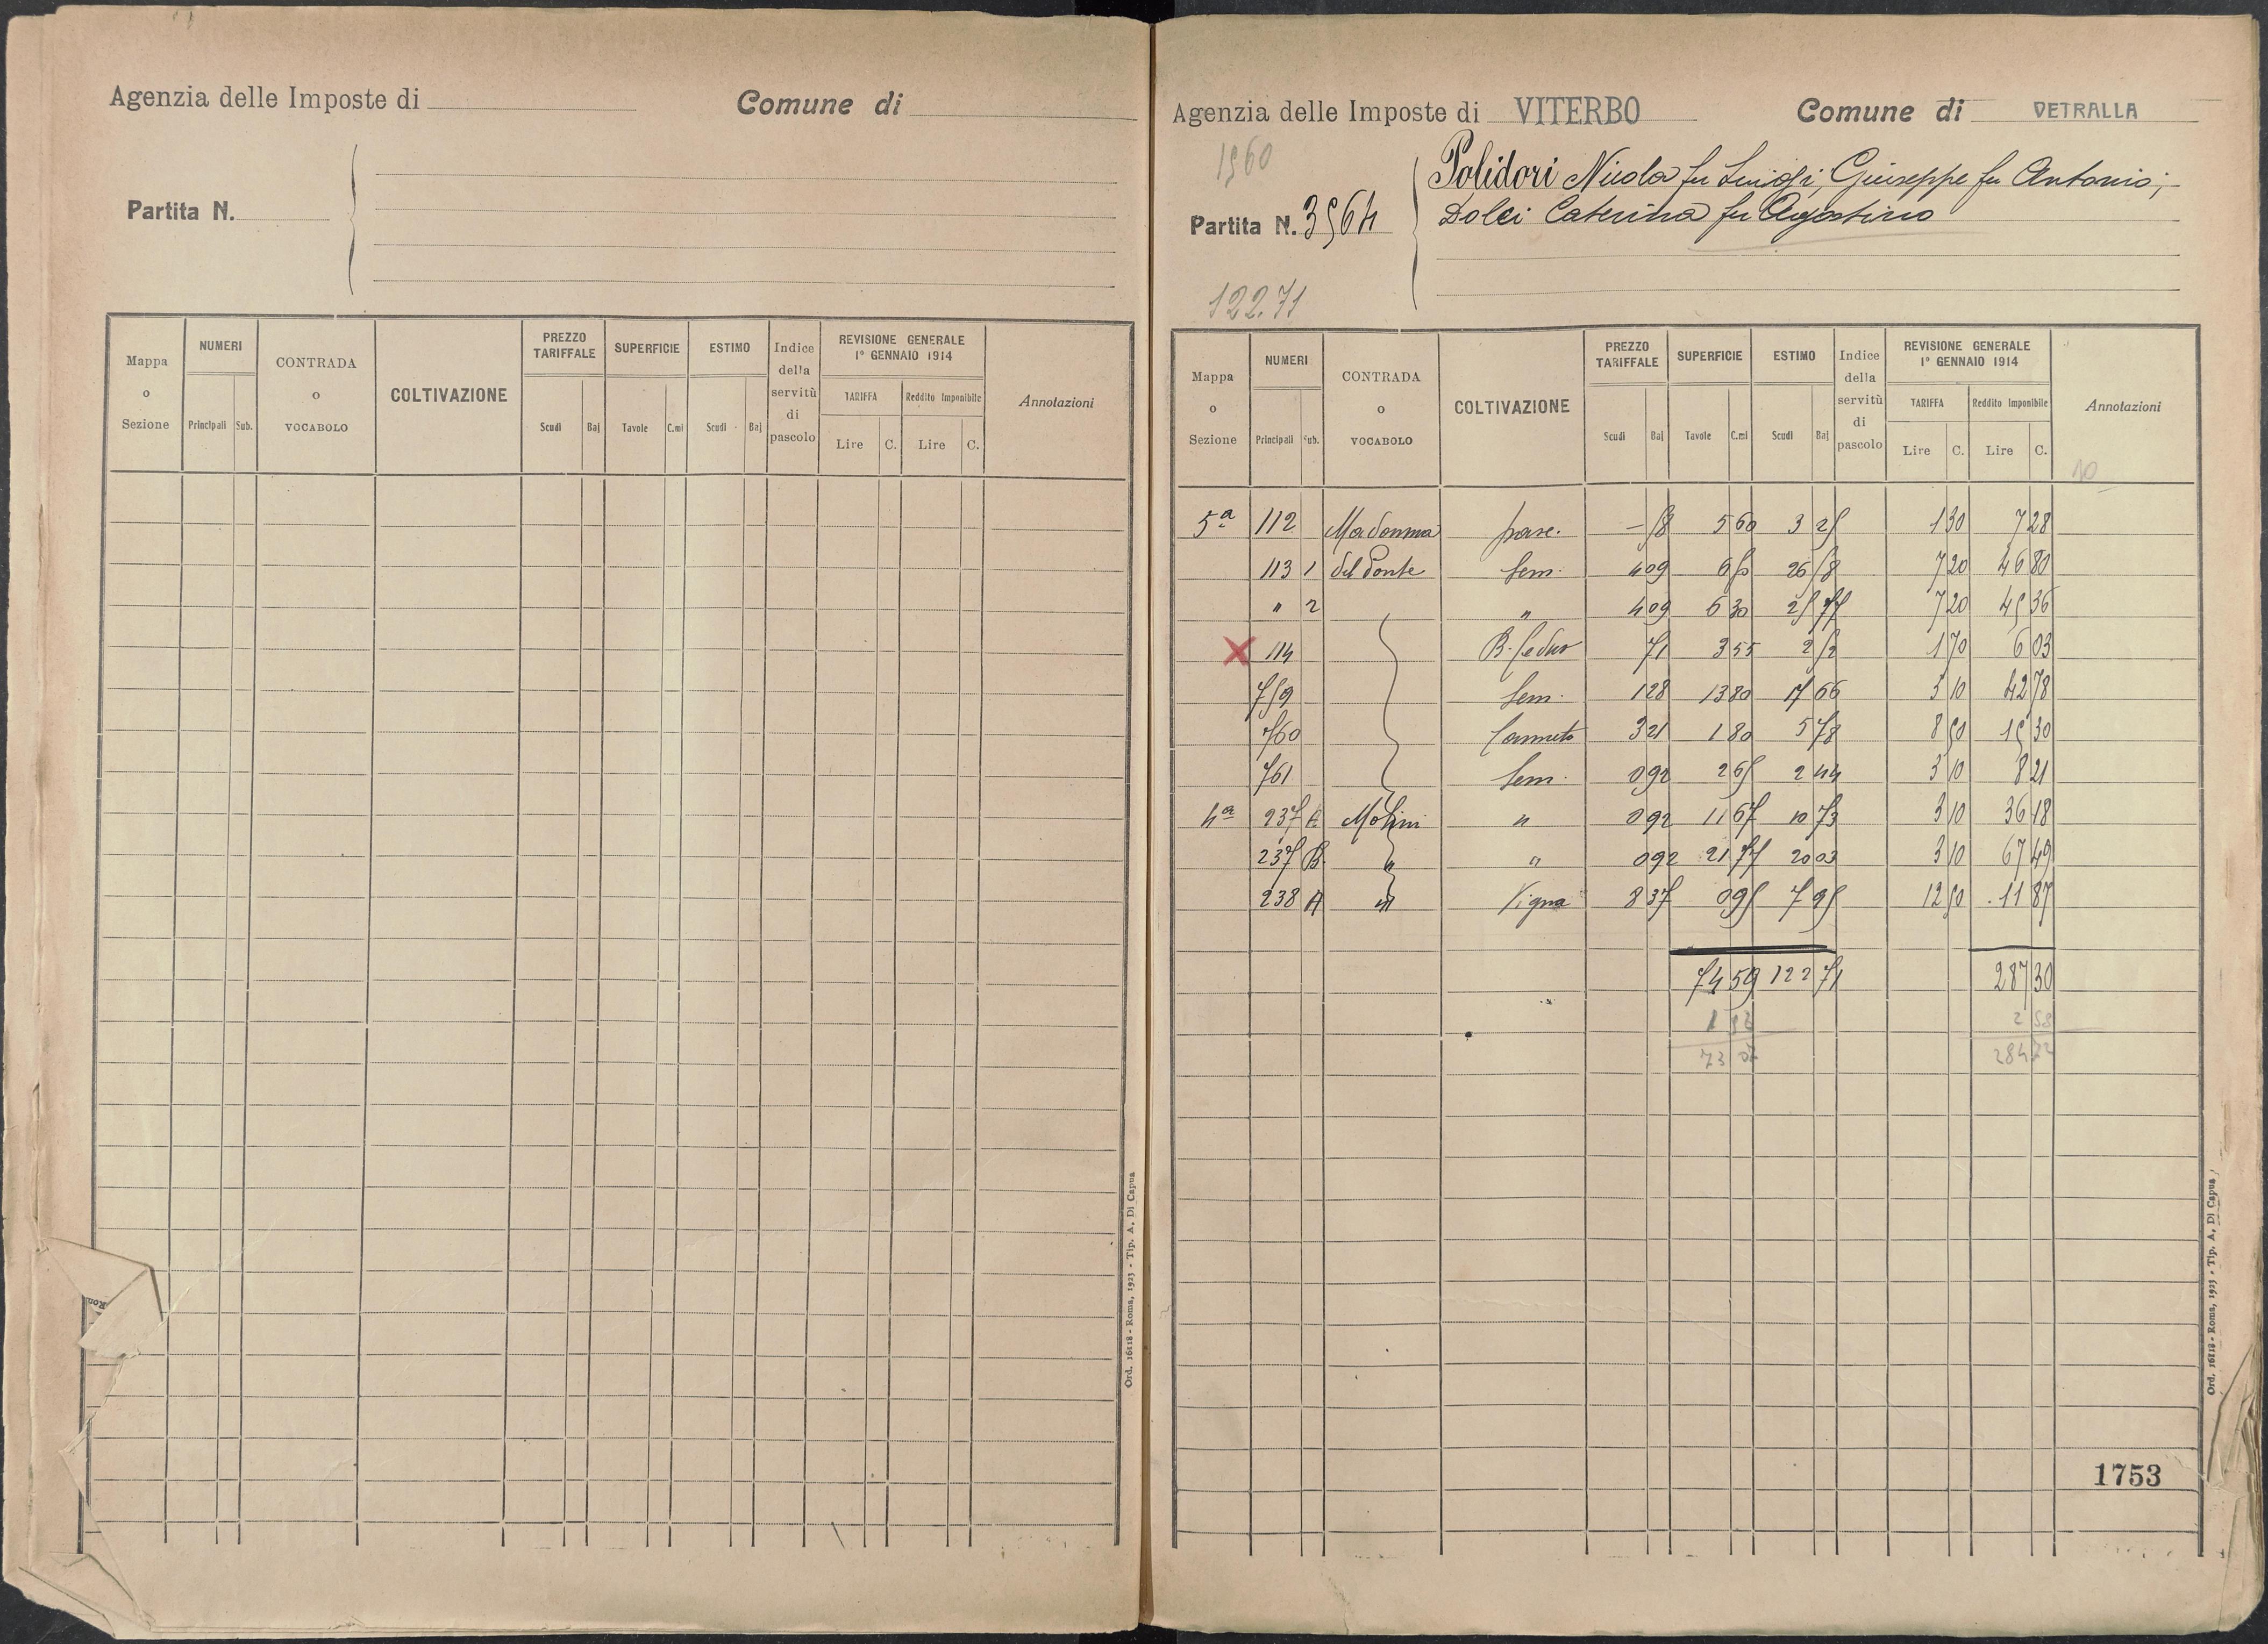 Agenzia delle Imposte di
Comune di
Partita N.
Mappa o Sezione
NUMERI
Principali Sub.
CONTRADA o VOCABOLO
COLTIVAZIONE
PREZZO TARIFFALE
Scudi Baj
SUPERFICIE
Tavole C.mi
ESTIMO
Scudi Baj
Indice della servitù di pascolo
REVISIONE GENERALE
1º GENNAIO 1914
TARIFFA Reddito Imponibile
Lire C. Lire C.
Annotazioni
Ord. 16118 - Roma, 1923 - Tip. A. Di Capua
Agenzia delle Imposte di VITERBO Comune di VETRALLA
1560
Partita N. 3564
Polidori Nicola fu Luigi, Giuseppe fu Antonio;
Dolci Caterina fu Agostino
122.71
Mappa o Sezione
NUMERI
Principali Sub.
CONTRADA o VOCABOLO
COLTIVAZIONE
PREZZO TARIFFALE
Scudi Baj
SUPERFICIE
Tavole C.mi
ESTIMO
Scudi Baj
Indice della servitù di pascolo
REVISIONE GENERALE
1º GENNAIO 1914
TARIFFA Reddito Imponibile
Lire C. Lire C.
Annotazioni
10
5ª 112 Madonna pasc. – 58 5 60 3 25 1 30 7 28
113 1 del Ponte Sem. 4 09 6 5 26 58 7 20 46 80
" 2 " 4 09 6 30 25 77 7 20 45 36
X 114 B. Ceduo 71 3 55 2 52 1 70 6 03
759 Sem. 1 28 13 80 17 66 3 10 42 78
760 Canneto 3 21 1 80 5 78 8 50 15 30
761 Sem. 0 92 2 65 2 44 3 10 8 21
4ª 237 A Molini " 0 92 11 67 10 73 3 10 36 18
237 B " " 0 92 21 77 20 03 3 10 67 49
238 A " Vigna 8 37 0 95 7 95 12 50 11 87
74 59 122 71 287 30
1 52 2 58
73 07 284 72
1753
Ord. 16118 - Roma, 1923 - Tip. A. Di Capua